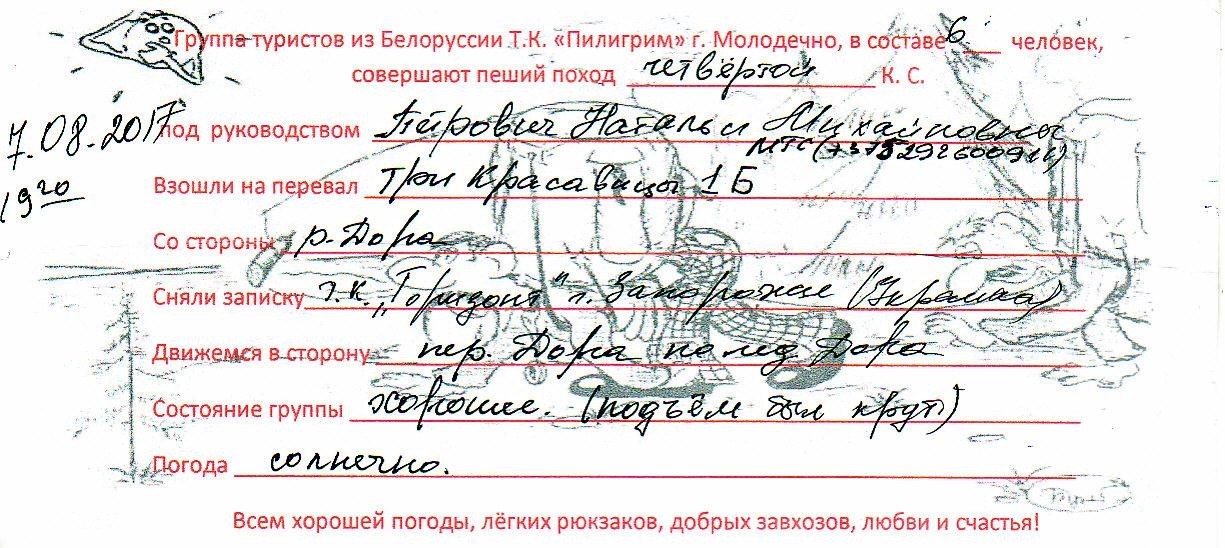 Группа туристов из Белоруссии Т.К. «Пилигрим» г. Молодечно, в составе 6 человек,
совершают пеший поход четвёртой К. С.
7.08.2017
19 20
под руководством Петрович Натальи Михайловны
МТС (+375292600911)
Взошли на перевал Три Красавицы 1Б
Со стороны р. Дора
Сняли записку т.к. „Горизонт" г. Запорожье (Украина)
Движемся в сторону пер. Дора по лед Дора
Состояние группы хорошее. (подъём был крут)
Погода солнечно.
Всем хорошей погоды, лёгких рюкзаков, добрых завхозов, любви и счастья!